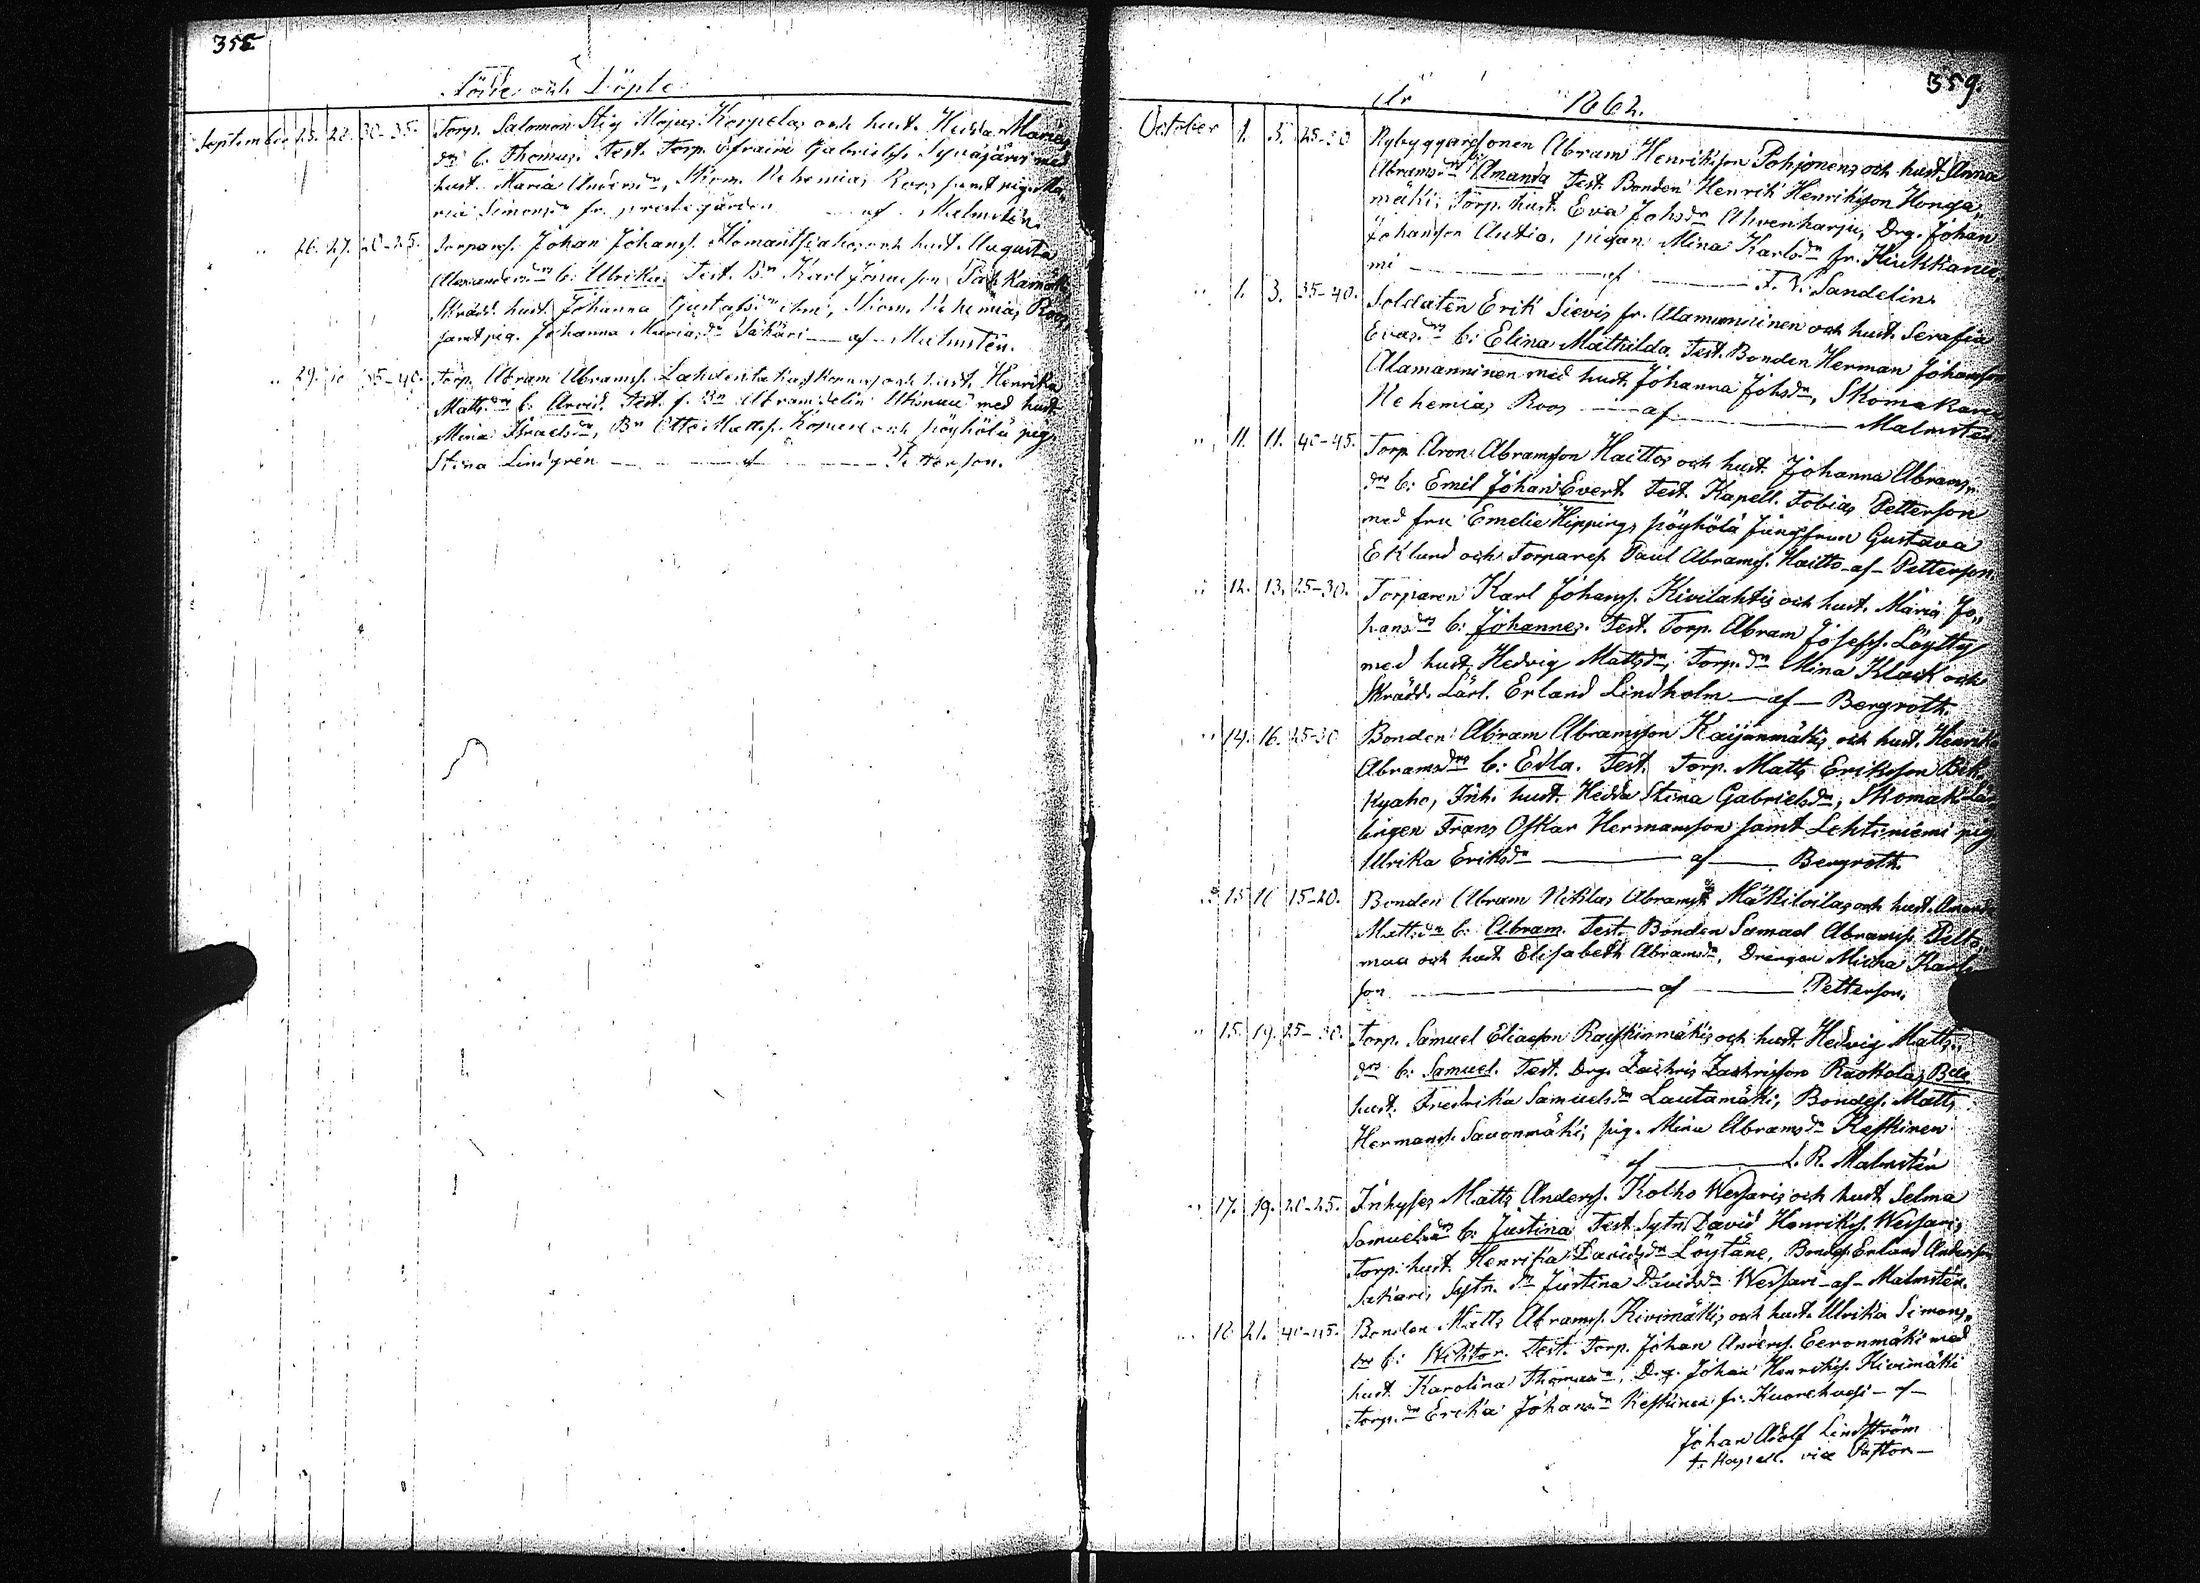 358
Födde och Döpte
September 25. 28. 30-35. Torp. Salomon Stig Mojas Korpelas och hust. Hedda Marias
dr b. Thomas. Test. Torp. Efraim Gabrielss. Syväjärvi med
hust. Maria Andersdr, Skom. Nehemias Roos samt pig. Ma„
ria Simonsdr fr. prestegården af Malmstén.
„ 26. 27. 20-25. Torpareß. Johan Johanß. och hust. Augusta
Alexandersdrs b: Ulrika. Test. Bn Karl Jonasson
Skrädd. hust. Johanna Gustafsdr Skom. Nehemias Roos,
samt pig. Johanna Mariasdr Säkäri — af — Malmstén.
„ 29. 35-40. Torp. Abram Abramß. och hust. Henrika
Mattsdrs b: Arvid. Test. f. Bn Abram med hust.
Mina Israelsdr, Bn Otto Mattsß. och Pöyhölä pig.
Stina Lindgrén — af — Petterson.
359.
År 1862.
October 1. 5. 25-30 Nybyggarsonen Abram Henriksson Pohjonens och hust. Anna
Abramsdrs b: Amanda Test. Bonden Henrik Henriksson Honga„
mäki, Torp. hust. Eva Johsdr Ahvenharju, Drg. Johan
Johanson Autio, pigan Mina Karlsdr fr.
mi — af — F. V. Sandelin.
„ 1. 3. 35-40. Soldaten Erik Sievis fr. Alamanninen och hust. Serafia
Evas.drs b: Elina Mathilda. Test. Bonden Herman Johansson
Alamanninen med hust. Johanna Johsdr, Skomakare
Nehemias Roos — af — Malmstén
„ 11. 11. 40-45. Torp. Aron Abramsson Haittos och hust. Johanna Abrams„
drs b: Emil Johan Evert Test. Kapell. Tobias Petterson
med fru Emelie Hipping, pöyhölä Jungfrun Gustava
Eklund och Torpareß. Paul Abramß. Haitto — af — Petterson.
„ 12. 13. 25-30. Torparen Karl Johanß. Kivilahtis och hust. Maria Jo„
hansdrs b: Johannes. Test. Torp. Abram Josefß. Löytty
med hust. Hedvig Mattsdr, Torp. dr Mina Klack och
Skrädd. Lärl. Erland Lindholm — af — Bergroth.
„ 14. 16. 25-30 Bonden Abram Abramsson Kaijanmäkis och hust. Henrika
Abramsdrs b: Edla. Test. Torp. Matts Eriksson
Kyaho, Inh. hust. Hedda Stina Gabrielsdr, Skomak. Lär
lingen Frans Oskar Hermansson samt Lehtiniemi pig
Ulrika Eriksdr — af — Bergroth.
„ 15. 16 15-20. Bonden Abram Niklas Abramß. och hust. Amanda
Mattsdrs b: Abram. Test. Bonden Samuel Abramß. Pelto„
maa och hust. Elisabeth Abramsdr, Drengen Karls
son — af — Petterson.
„ 15. 19. 25-30. Torp. Samuel Eliasson Raiskinmäkis och hust. Hedvig Matts„
drs b: Samuel. Test. Drg. Zachris Zachrisson
hust. Fredrika Samuelsdr Lautamäki, Bondeß. Matts
Hermanß. Savonmäki, pig. Mina Abramsdr Keskinen
af — L. R. Malmstén
„ 17. 19. 20-25. Inhyses Matts Anderß. Kotho Wessaris och hust. Selma
Samuelsdrs b: Justina Test. Sytn. David Henrikß. Wessari,
Torp. hust. Henrika Davidsdr Löytäne, Bondeß. Erland Andersson
Sakari, Sytn. dr Justina Davidsdr Wessari — af — Malmstén.
„ 18. 21. 40-45. Bonden Matts Abramß. Kivimäkis och hust. Ulrika Simons„
drs b: Wiktor. Test. Torp. Johan Anderß. Eeronmäki med
hust. Karolina Thomasdr, Drg. Johan Henrikß. Kivimäki
Torp. dr Erika Johansdr Keskinen fr. — af —
Johan Adolf Lindström
t. Kapell. vice Pastor —